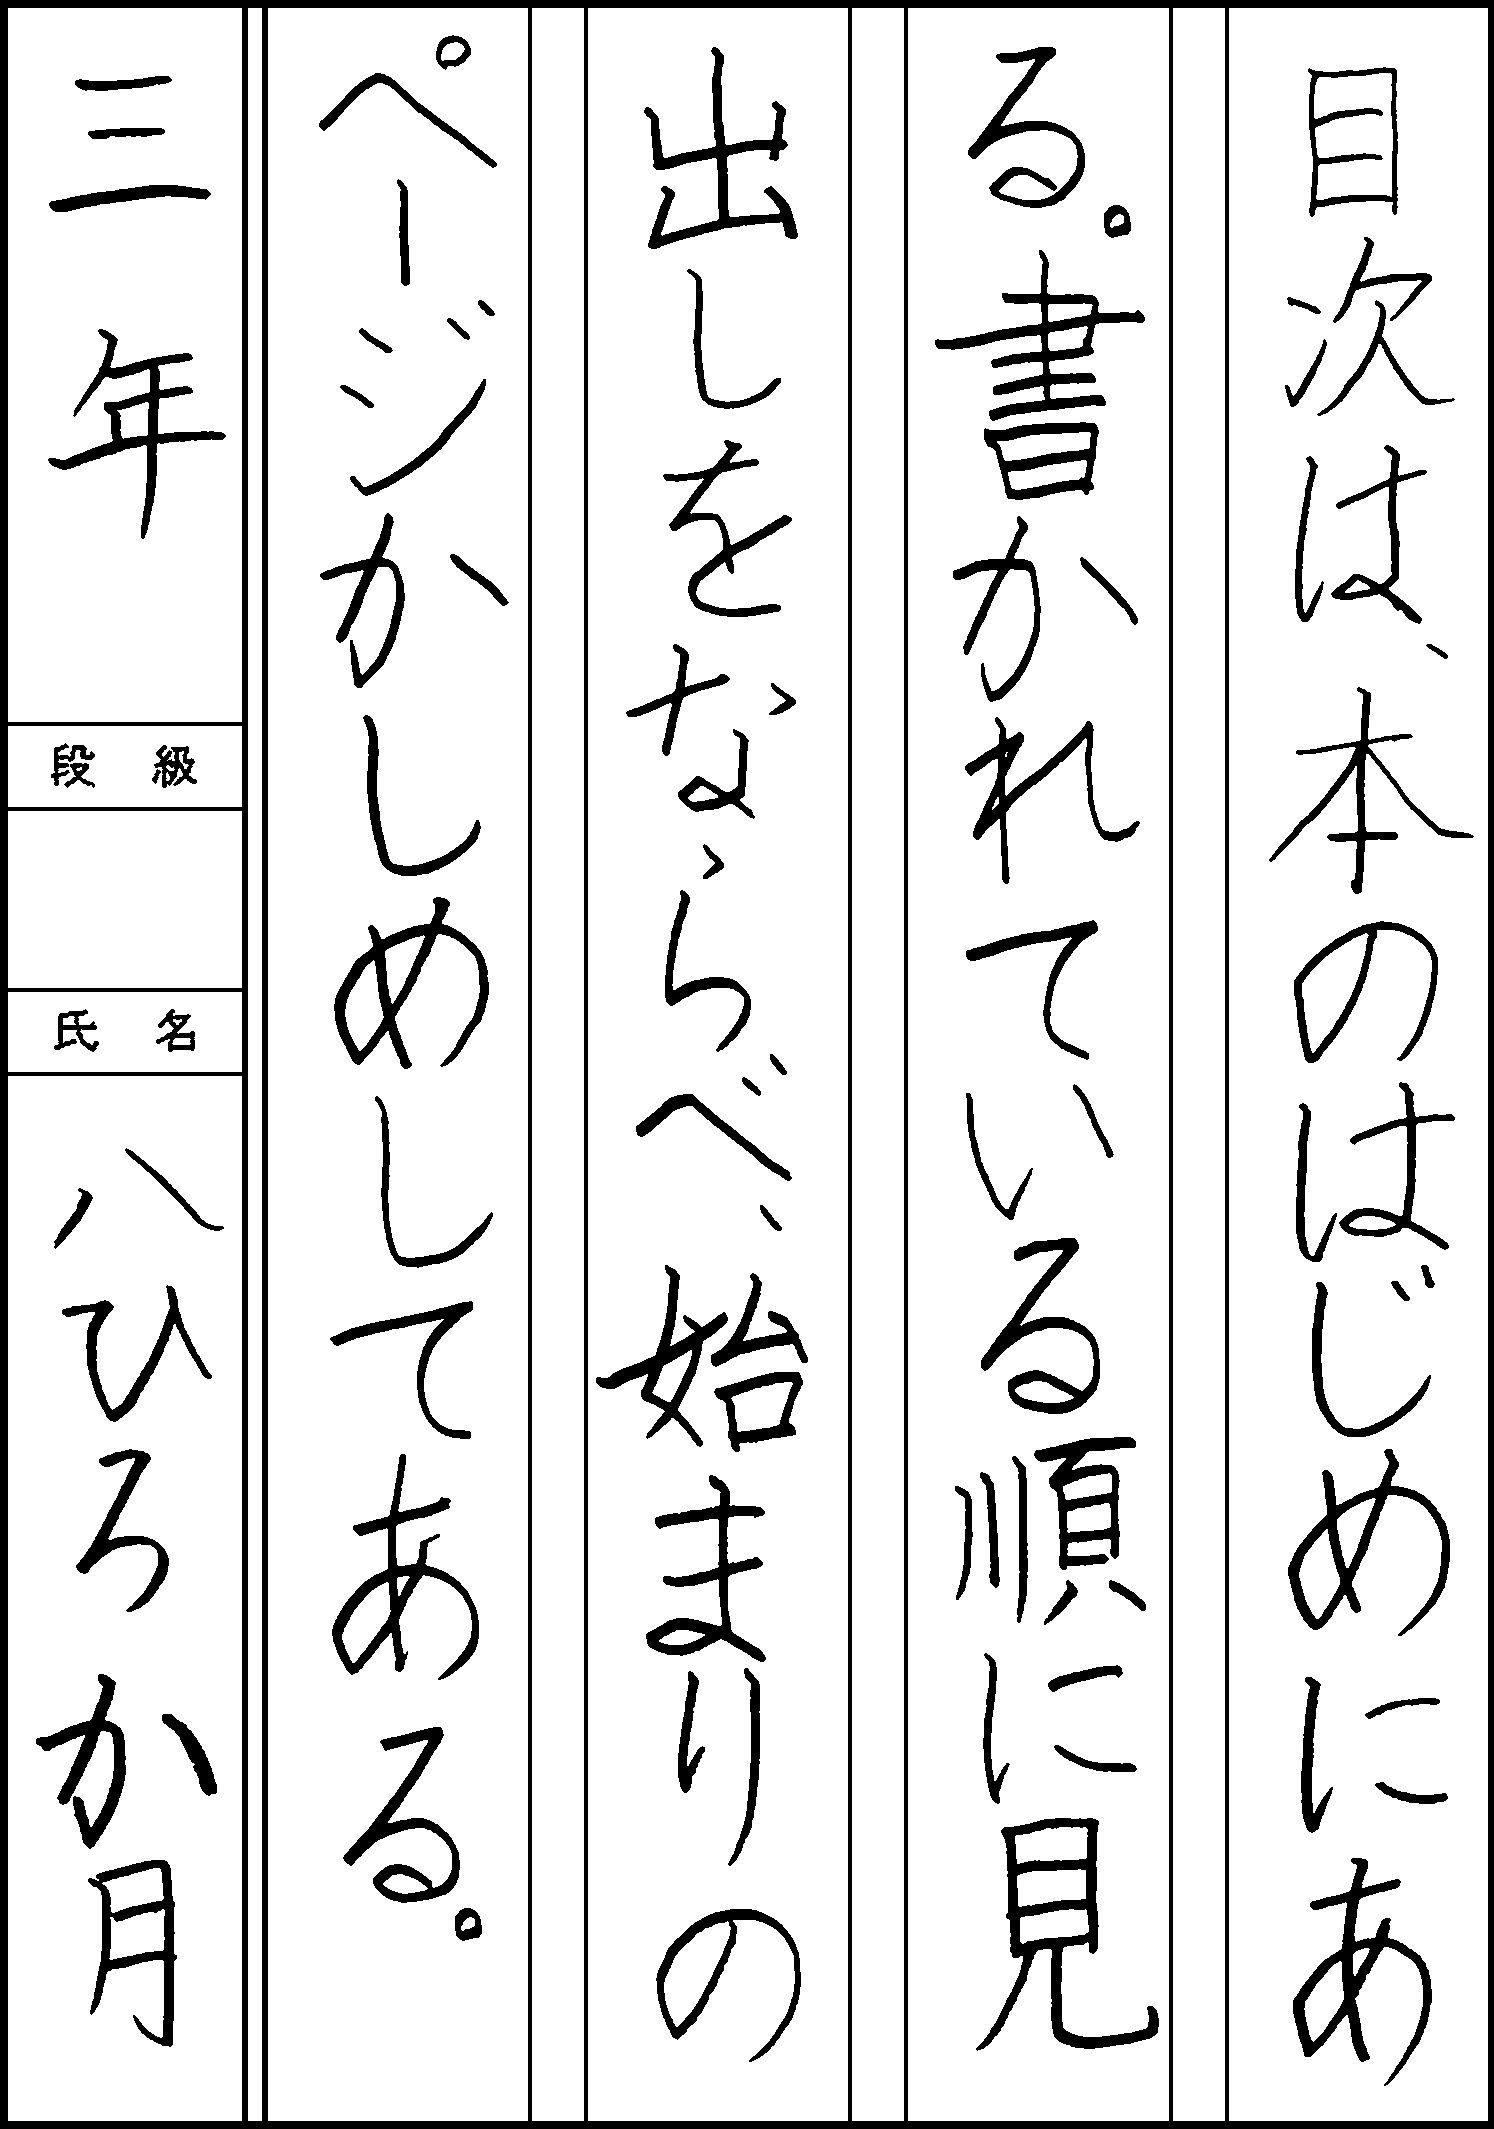 目次は、本のはじめにあ
る。書かれている順に見
出しをならべ、始まりの
ページかしめしてある。
三年
段級
氏名
八ひろか月